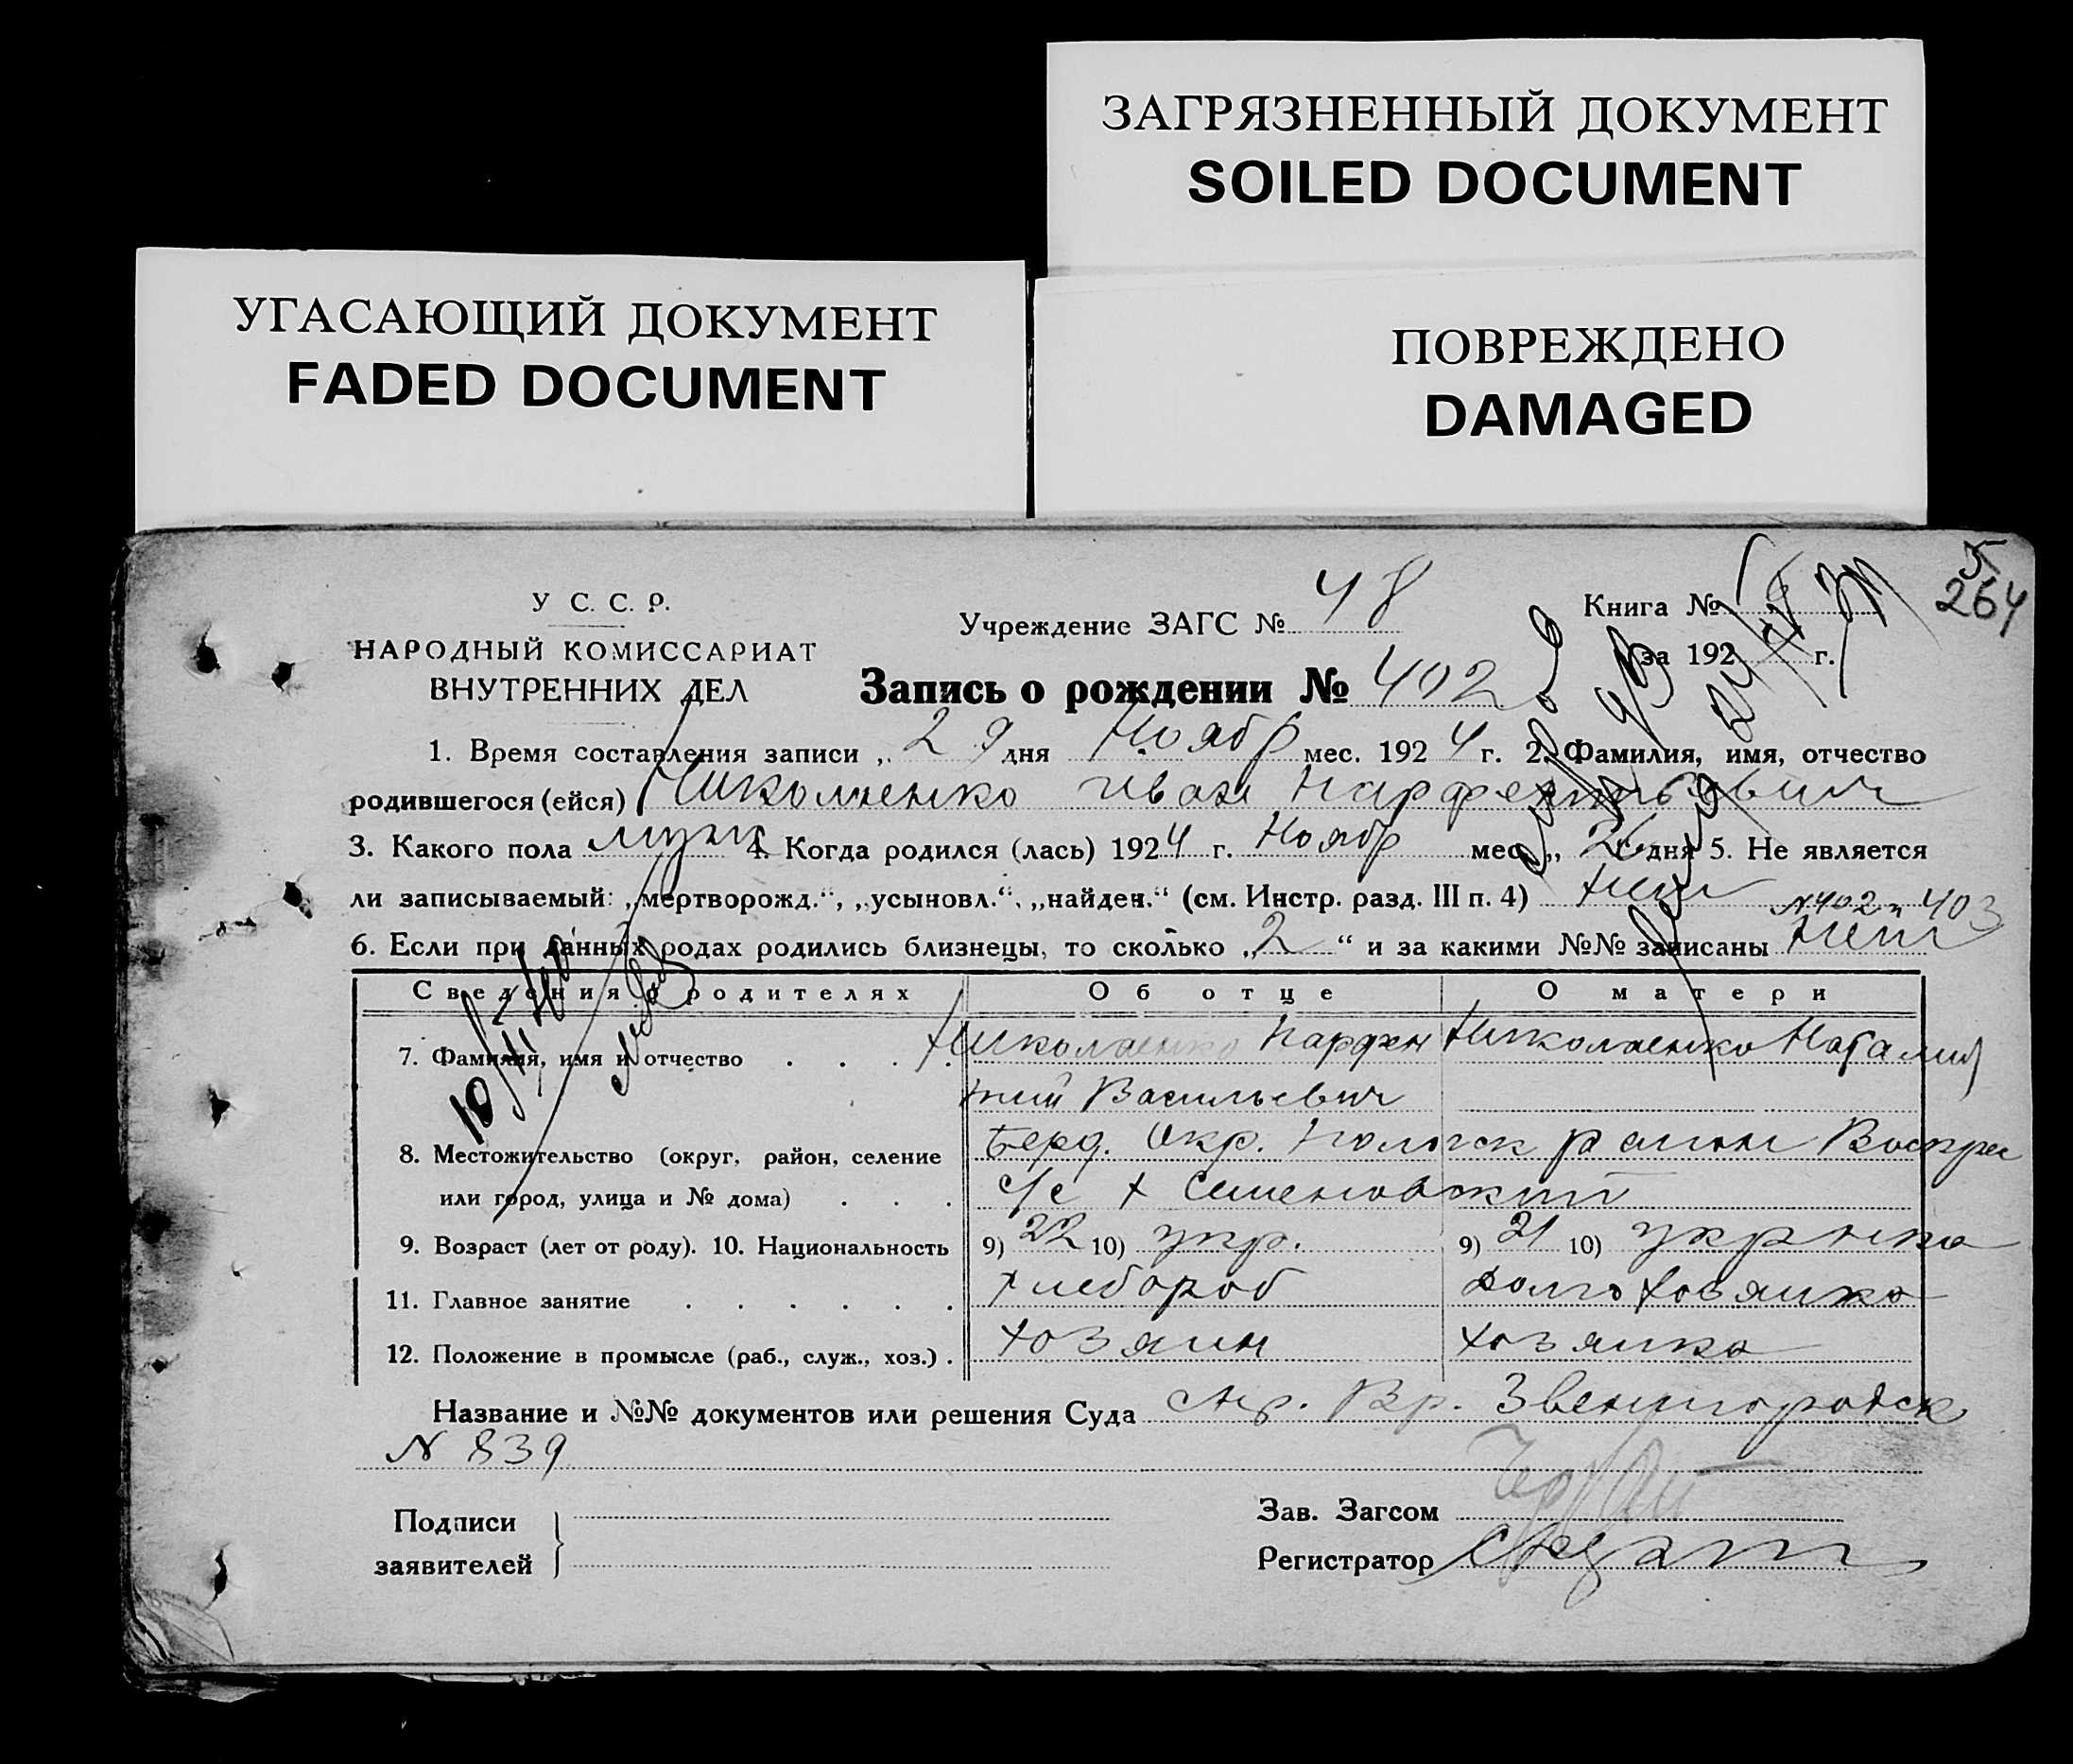 ЗАГРЯЗНЕННЫЙ ДОКУМЕНТ
SOILED DOCUMENT
УГАСАЮЩИЙ ДОКУМЕНТ
FADED DOCUMENT
ПОВРЕЖДЕНО
DAMAGED
5
264
У С. С. Р.
НАРОДНЫЙ КОМИССАРИАТ
ВНУТРЕННИХ ДЕЛ
Учреждение ЗАГС № 48
Книга №
за 192 г.
Запись о рождении № 402
1. Время составления записи „ 29 дня Ноябр мес. 1924 г. 2. Фамилия, имя, отчество
родившегося (ейся) Николаенко Иван Парфентьевич
3. Какого пола муж 4. Когда родился (лась) 1924 г. Ноябр мес. „ 26 дня 5. Не является
ли записываемый: „мертворожд.“, „усыновл.“, „найден.“ (см. Инстр. разд. III п. 4) нет
N402 и 403
6. Если при данных родах родились близнецы, то сколько „ 2 “ и за какими №№ записаны нет
Сведения о родителях Об отце О матери
7. Фамилия, имя и отчество . . . . Николаенко Парфен Николаенко Наталия
тий Васильевич
8. Местожительство (округ, район, селение Берд. Окр. Пологск район Воскрес
или город, улица и № дома) . . . с/с х Семеновский
9. Возраст (лет от роду). 10. Национальность 9) 22 10) укр. 9) 21 10) укр нка
11. Главное занятие . . . . . . хлебороб домохозяйка
12. Положение в промысле (раб., служ., хоз.) . хозяин хозяйка
Название и №№ документов или решения Суда Вр. Звенигородск
N 839
Подписи
заявителей
Зав. Загсом
Регистратор